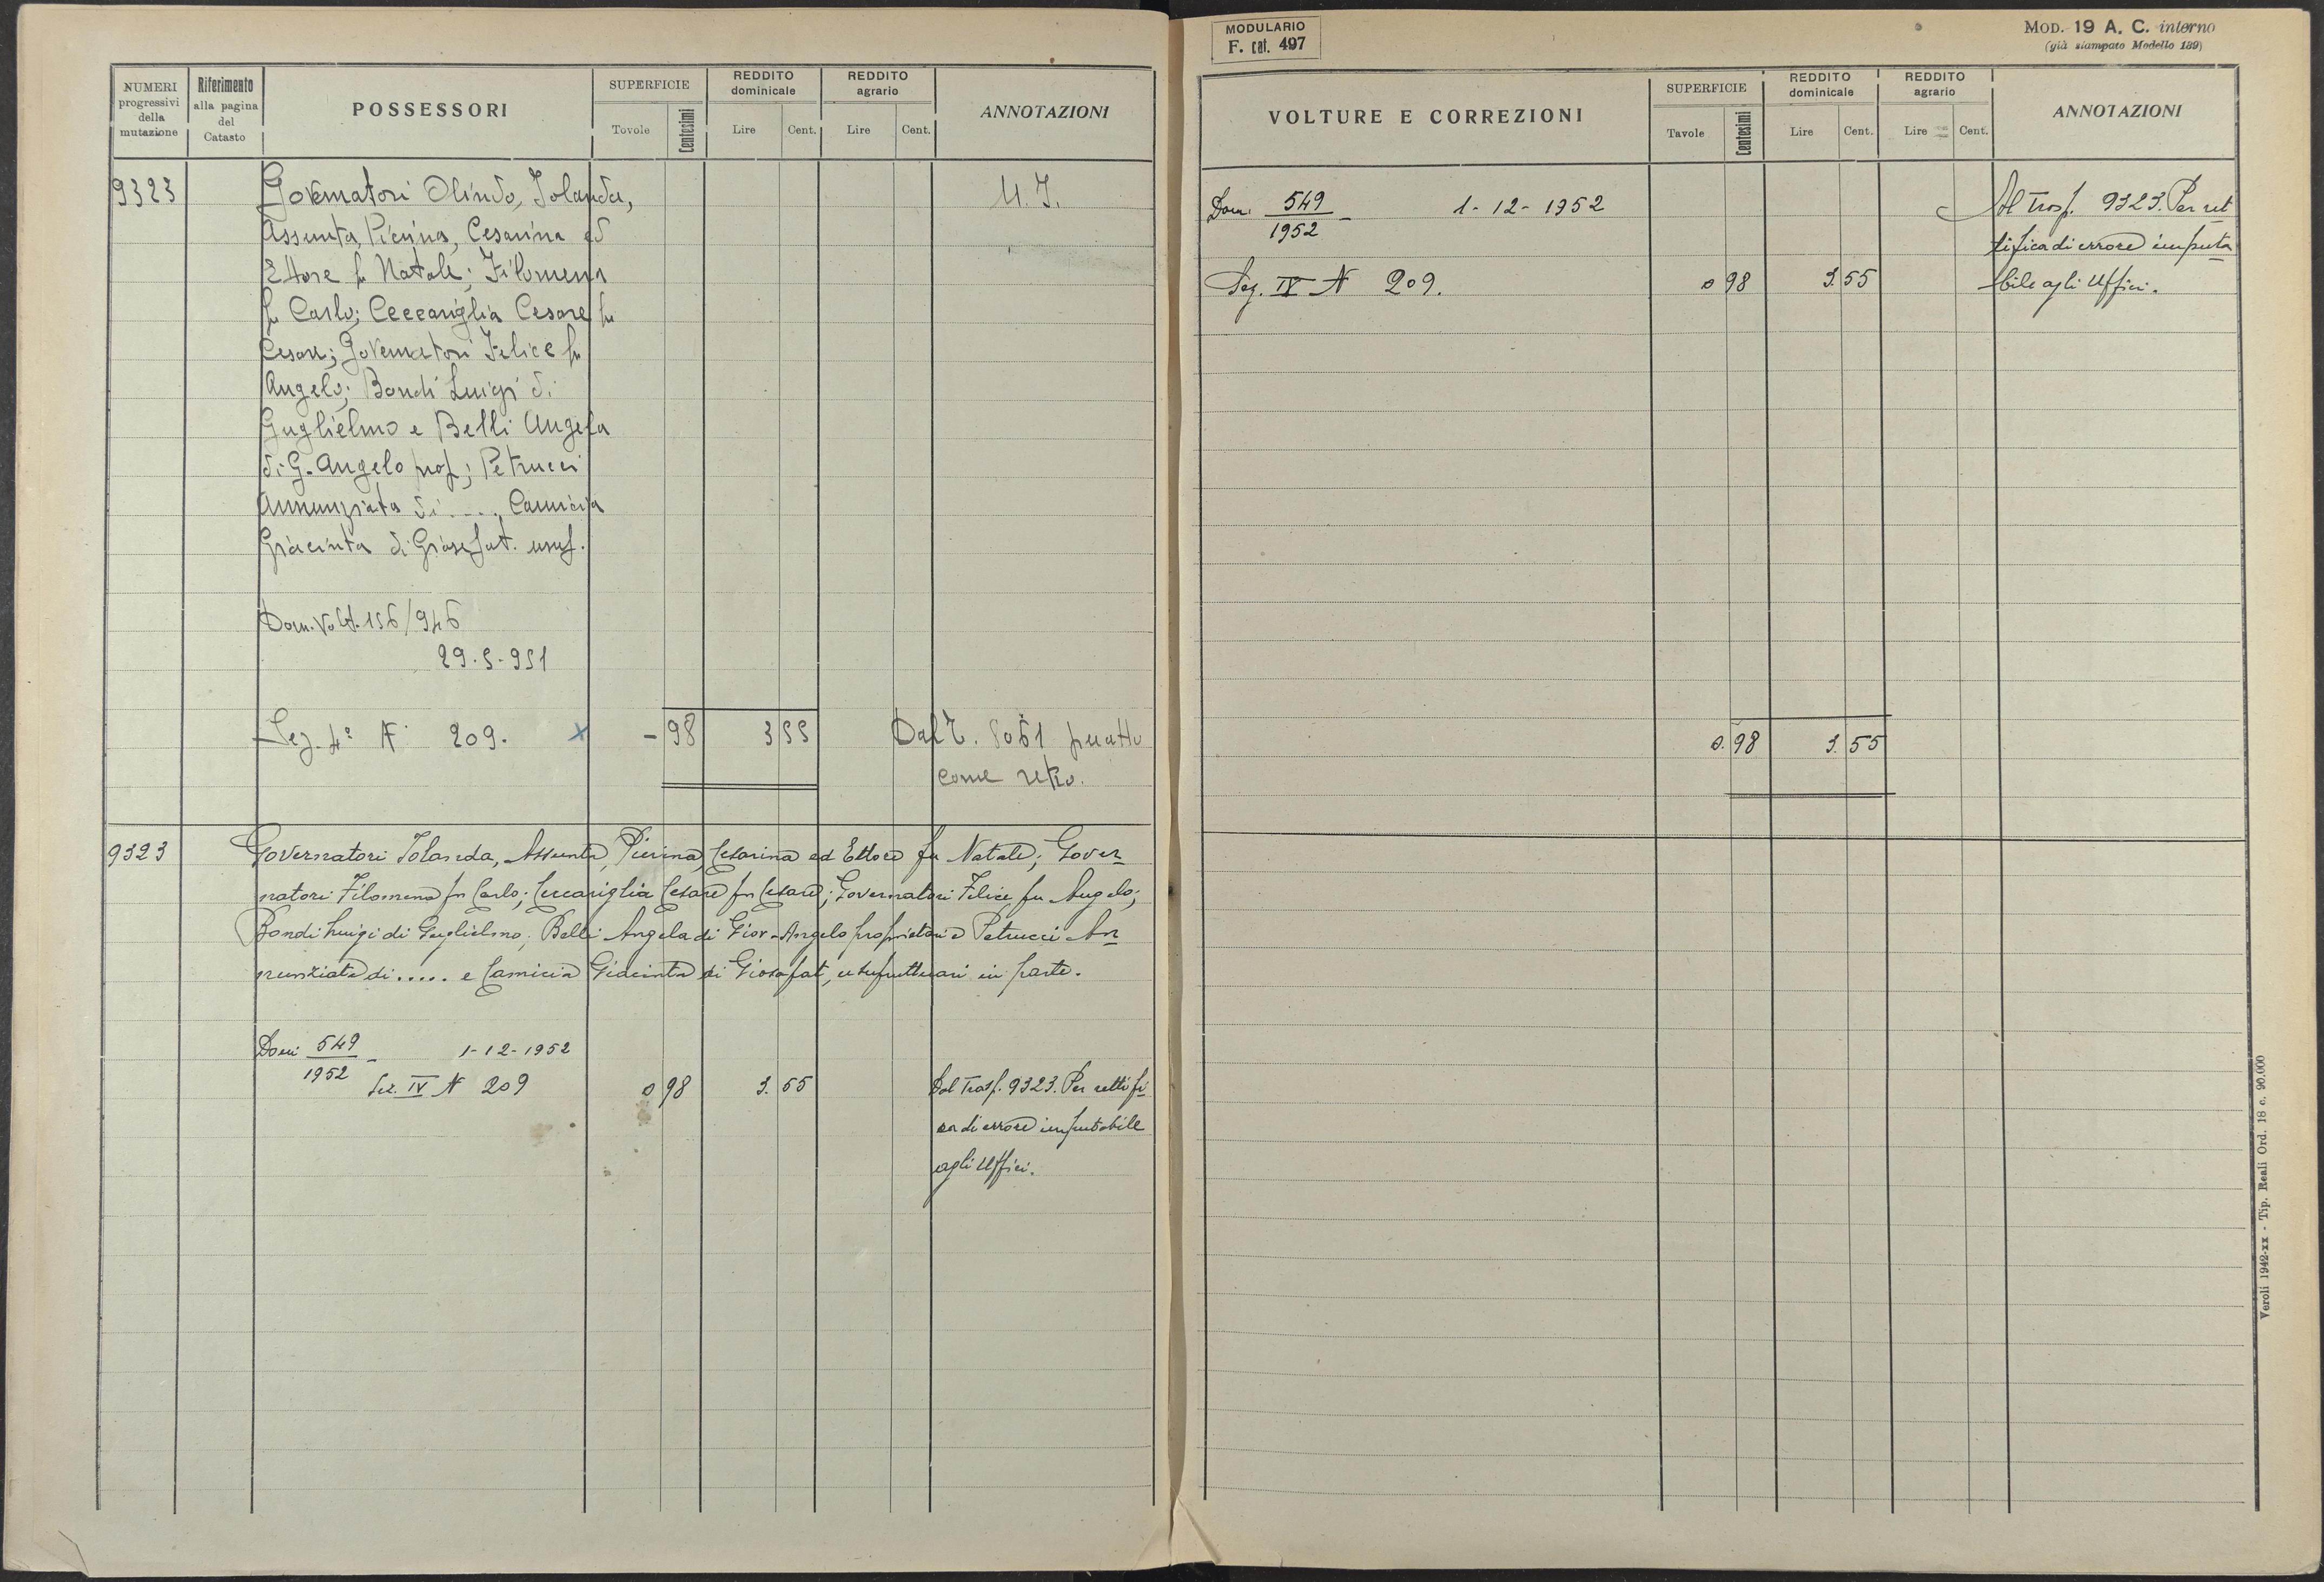 NUMERI progressivi della mutazione
Riferimento alla pagina del Catasto
POSSESSORI
SUPERFICIE
Tovole
Centesimi
REDDITO dominicale
Lire
Cent.
REDDITO agrario
Lire
Cent.
ANNOTAZIONI
9323
Governatori Olindo, Jolanda,
Assunta, Pierina, Cesarina ed
Ettore fu Natale; Filomena
fu Carlo; Ceccariglia Cesare fu
Cesare; Governatori Felice fu
Angelo; Bondi Luigi di
Guglielmo e Belli Angela
di G. Angelo prop; Petrucci
Annunziata di ...., Camicia
Giacinta di Giosafat. usuf.
Dom. Volt. 156/946
29.5.951
Sez. 4ª N 209. x - 98 3 55 Dal T.
come retro.
9323
Governatori Jolanda, Assunta, Pierina, Cesarina ed Ettore fu Natale; Gover
natori Filomena fu Carlo; Ceccariglia Cesare fu Cesare; Governatori Felice fu Angelo;
Bondi Luigi di Guglielmo; Belli Angela di Giov-Angelo proprietari e Petrucci An
nunziata di ..... e Camicia Giacinta di Giosafat, usufruttuari in parte.
Dom 549/1952 1-12-1952
Sez. IV N 209 0 98 3.55 Dal Trasf. 9323. Per rettifi
ca di errore imputabile
agli Uffici.
MODULARIO
F. cat. 497
MOD. 19 A. C. interno
(già stampato Modello 139)
VOLTURE E CORREZIONI
SUPERFICIE
Tavole
Centesimi
REDDITO dominicale
Lire
Cent.
REDDITO agrario
Lire
Cent.
ANNOTAZIONI
Dom. 549/1952 1-12-1952 Al Trasf. 9323. Per ret
tifica di errore imputa
Sez. IV N 209. 0 98 3.55 bile agli Uffici.
0.98 3.55
Veroli 1942-xx - Tip. Reali Ord. 18 c. 90.000